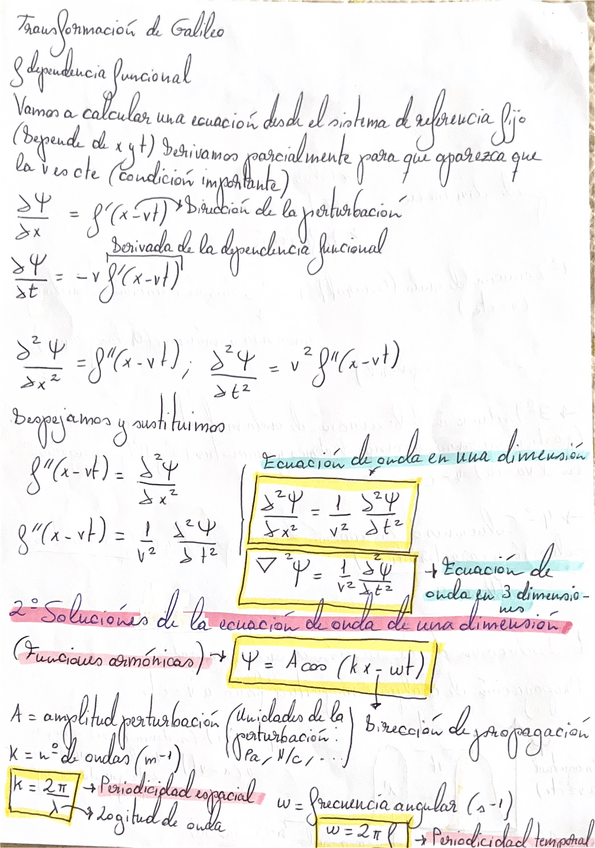 Transformación de Galileo
f dependencia funcional
Vamos a calcular una ecuación desde el sistema de referencia fijo
(Depende de x y t) Derivamos parcialmente para que aparezca que
la v es cte (condición importante)
∂Ψ/∂x = f'(x-vt) → Dirección de la perturbación
Derivada de la dependencia funcional
∂Ψ/∂t = -v f'(x-vt)
∂²Ψ/∂x² = f''(x-vt); ∂²Ψ/∂t² = v² f''(x-vt)
Despejamos y sustituimos
Ecuación de onda en una dimensión
f''(x-vt) = ∂²Ψ/∂x²
∂²Ψ/∂x² = 1/v² ∂²Ψ/∂t²
f''(x-vt) = 1/v² ∂²Ψ/∂t²
∇²Ψ = 1/v² ∂²Ψ/∂t² → Ecuación de
onda en 3 dimensio-
nes
2º Soluciones de la ecuación de onda de una dimensión
(Funciones armónicas) → Ψ = A cos (kx - wt)
Dirección de propagación
A = amplitud perturbación (Unidades de la
perturbación:
Pa, N/c, ...)
K = nº de ondas (m⁻¹)
k = 2π/λ → Periodicidad espacial
→ Logitud de onda
w = frecuencia angular (s⁻¹)
w = 2πf → Periodicidad temporal